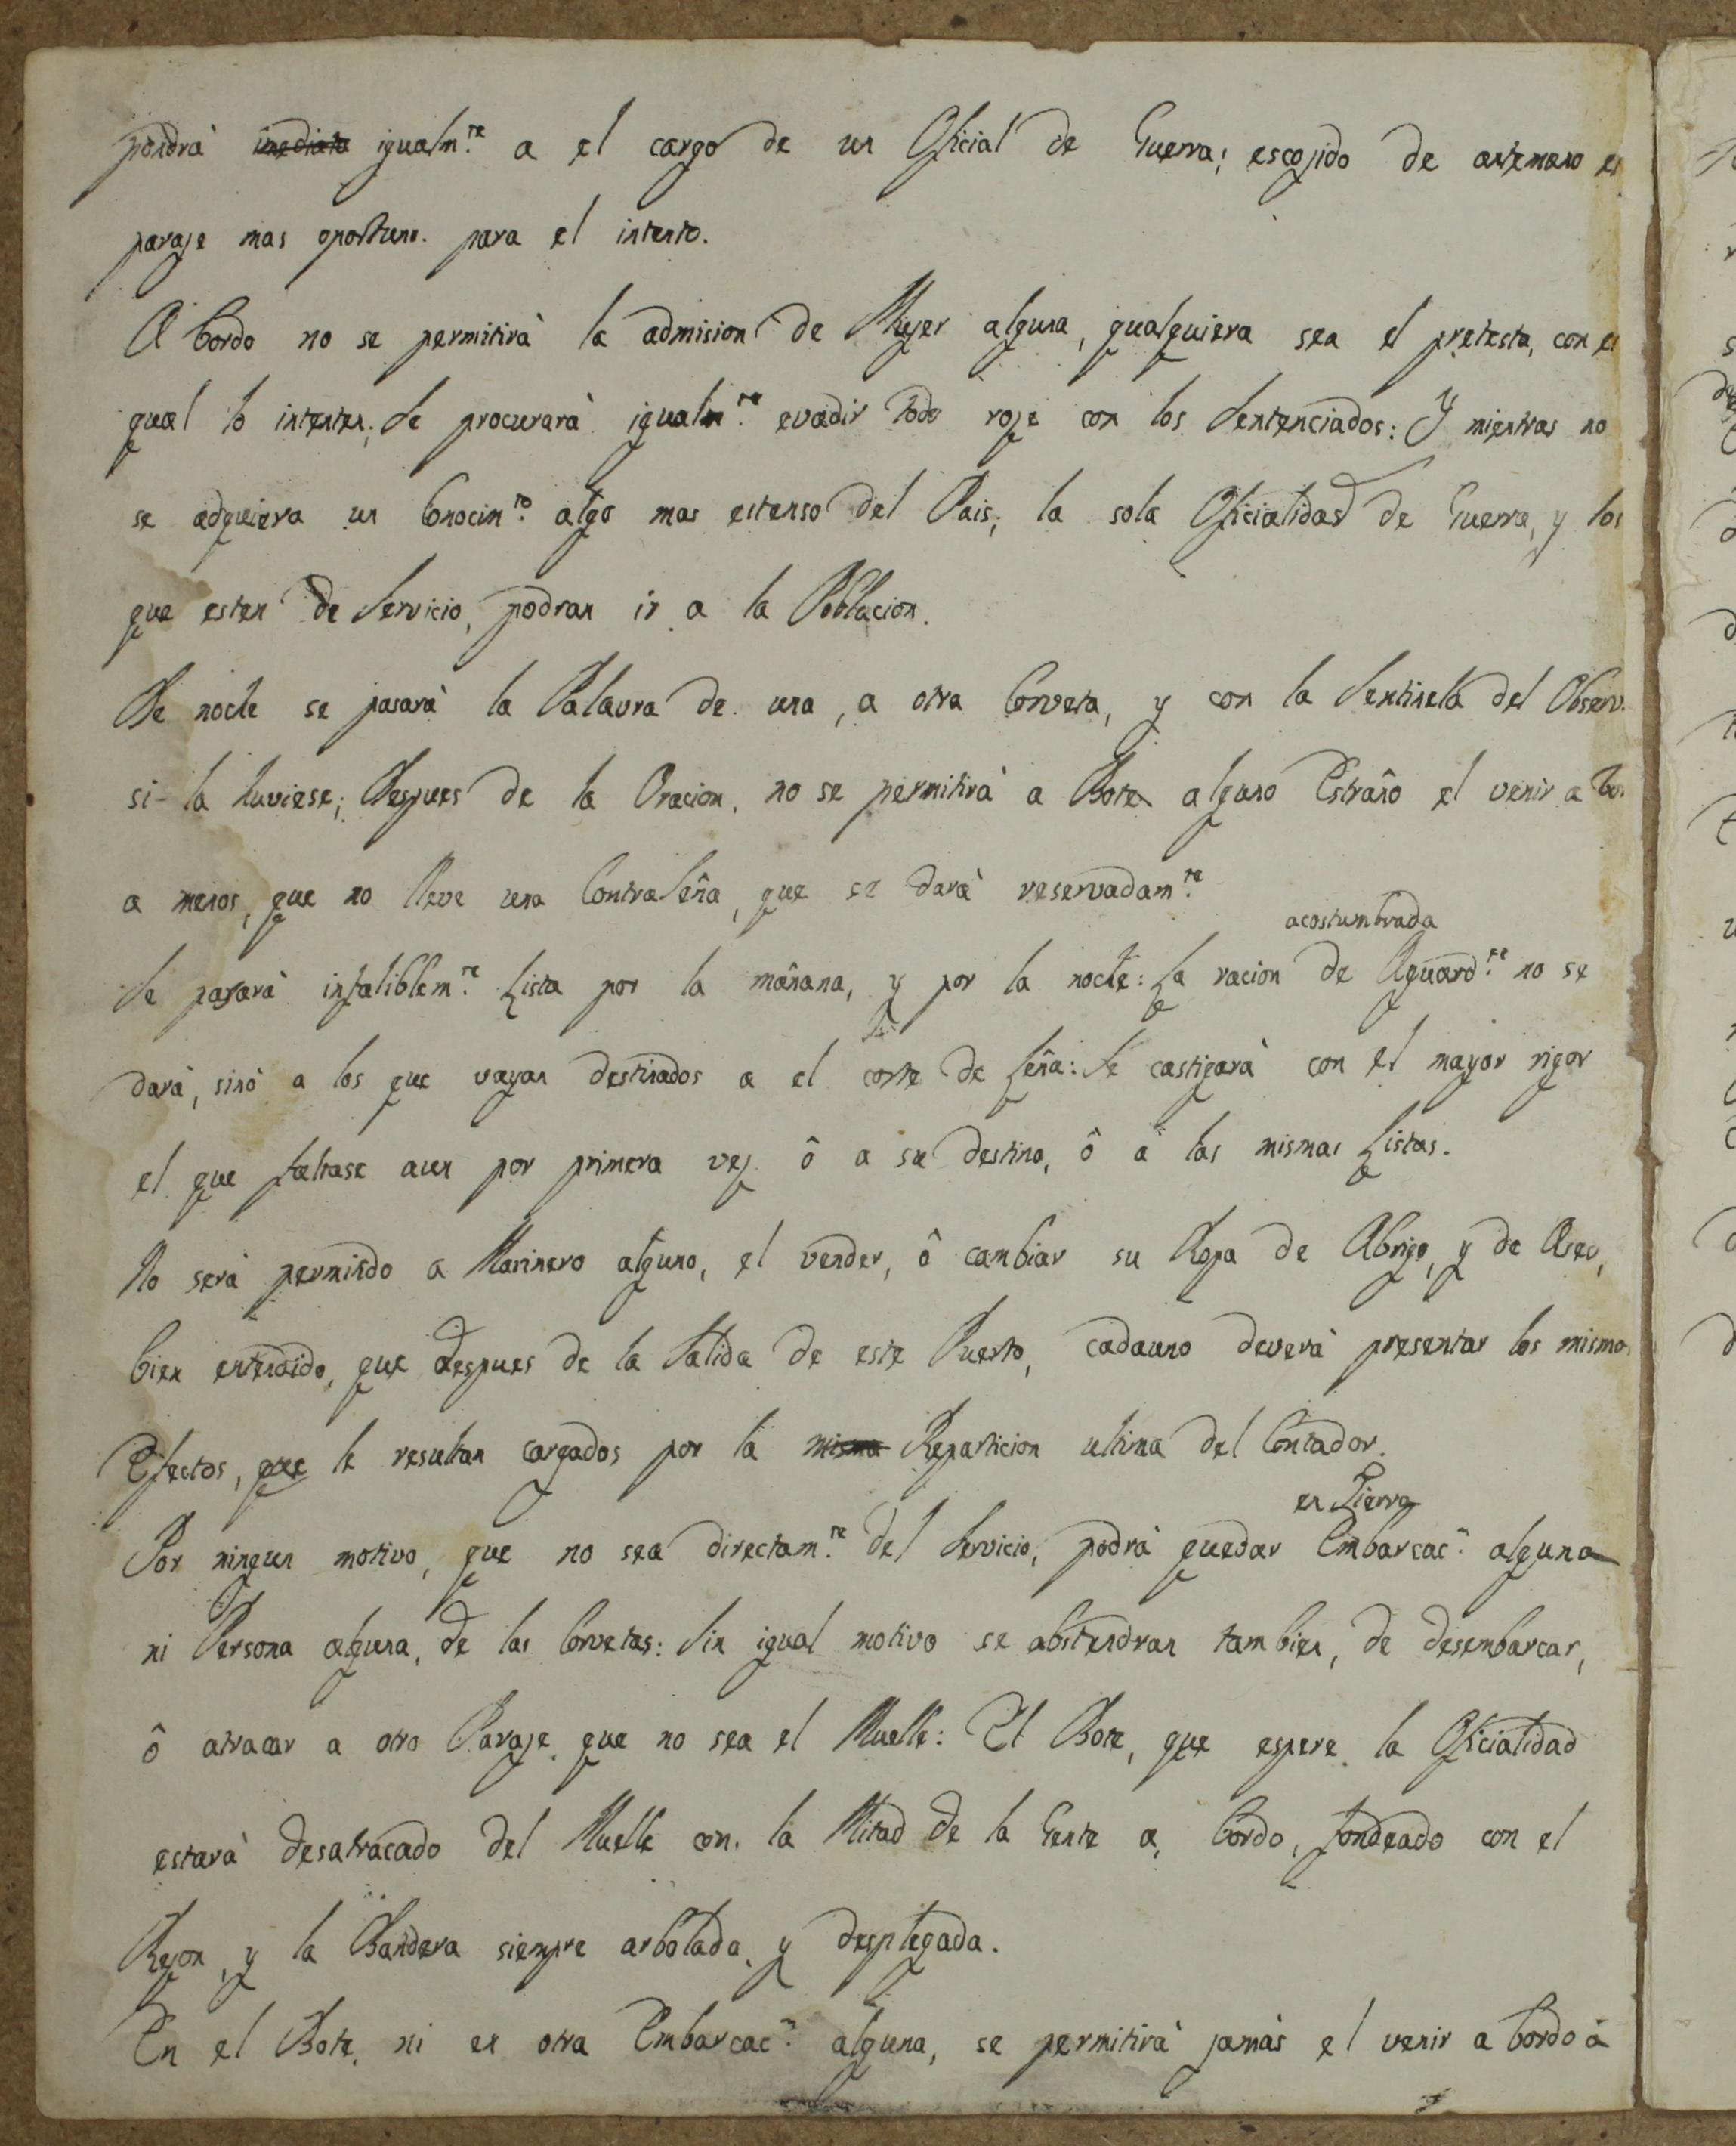 pondrà inediata igualm.te a el cargo de un Oficial de Guerra; escojido de antemano el
paraje mas oportuno. para el intento.
A bordo no se permitirà la admision de Mujer alguna, qualquiera sea el pretesto, con el
qual lo intenten; Se procurarà igualm.te evadir todo roje con los Sentenciados: Y mientras no
se adquiera un Conocim.to algo mas estenso del Pais; la sola Oficialidad de Guerra, y los
que esten de Servicio, podran ir a la Poblacion.
De noche se pasarà la Palavra de una, a otra Corveta, y con la Sentinela del Observ.
si la huviese; Despues de la Oracion, no se permitirà a Bote alguno Estraño el venir a bo.
a menos, que no lleve una Contraseña, que se darà reservadam.te
acostumbrada
Se pasarà infaliblem.te Lista por la mañana, y por la noche: La racion de Aguard.te no se
darà, sinò a los que vayan destinados a el corte de Leña: Se castigarà con el mayor rigor
el que faltase aun por primera vez ô a su destino, ô a las mismas Listas.
No serà permitido a Marinero alguno, el vender, ô cambiar su Ropa de Abrigo, y de Aseo,
bien entendido, que despues de la Salida de este Puerto, cadauno deverà presentar los mismos
Efectos, que le resultan cargados por la misma Reparticion ultima del Contador.
en Tierra
Por ningun motivo, que no sea directam.te del Servicio, podrà quedar Embarcac.n alguna
ni Persona alguna, de las Corvetas: Sin igual motivo se abstendran tambien, de desembarcar,
ô atracar a otro Paraje que no sea el Muelle: El Bote, que espere la Oficialidad
estarà desatracado del Muelle con la Mitad de la Gente a bordo, fondeado con el
Rejon, y la Bandera siempre arbolada, y desplegada.
En el Bote, ni en otra Embarcac.n alguna, se permitirà jamàs el venir a bordo à